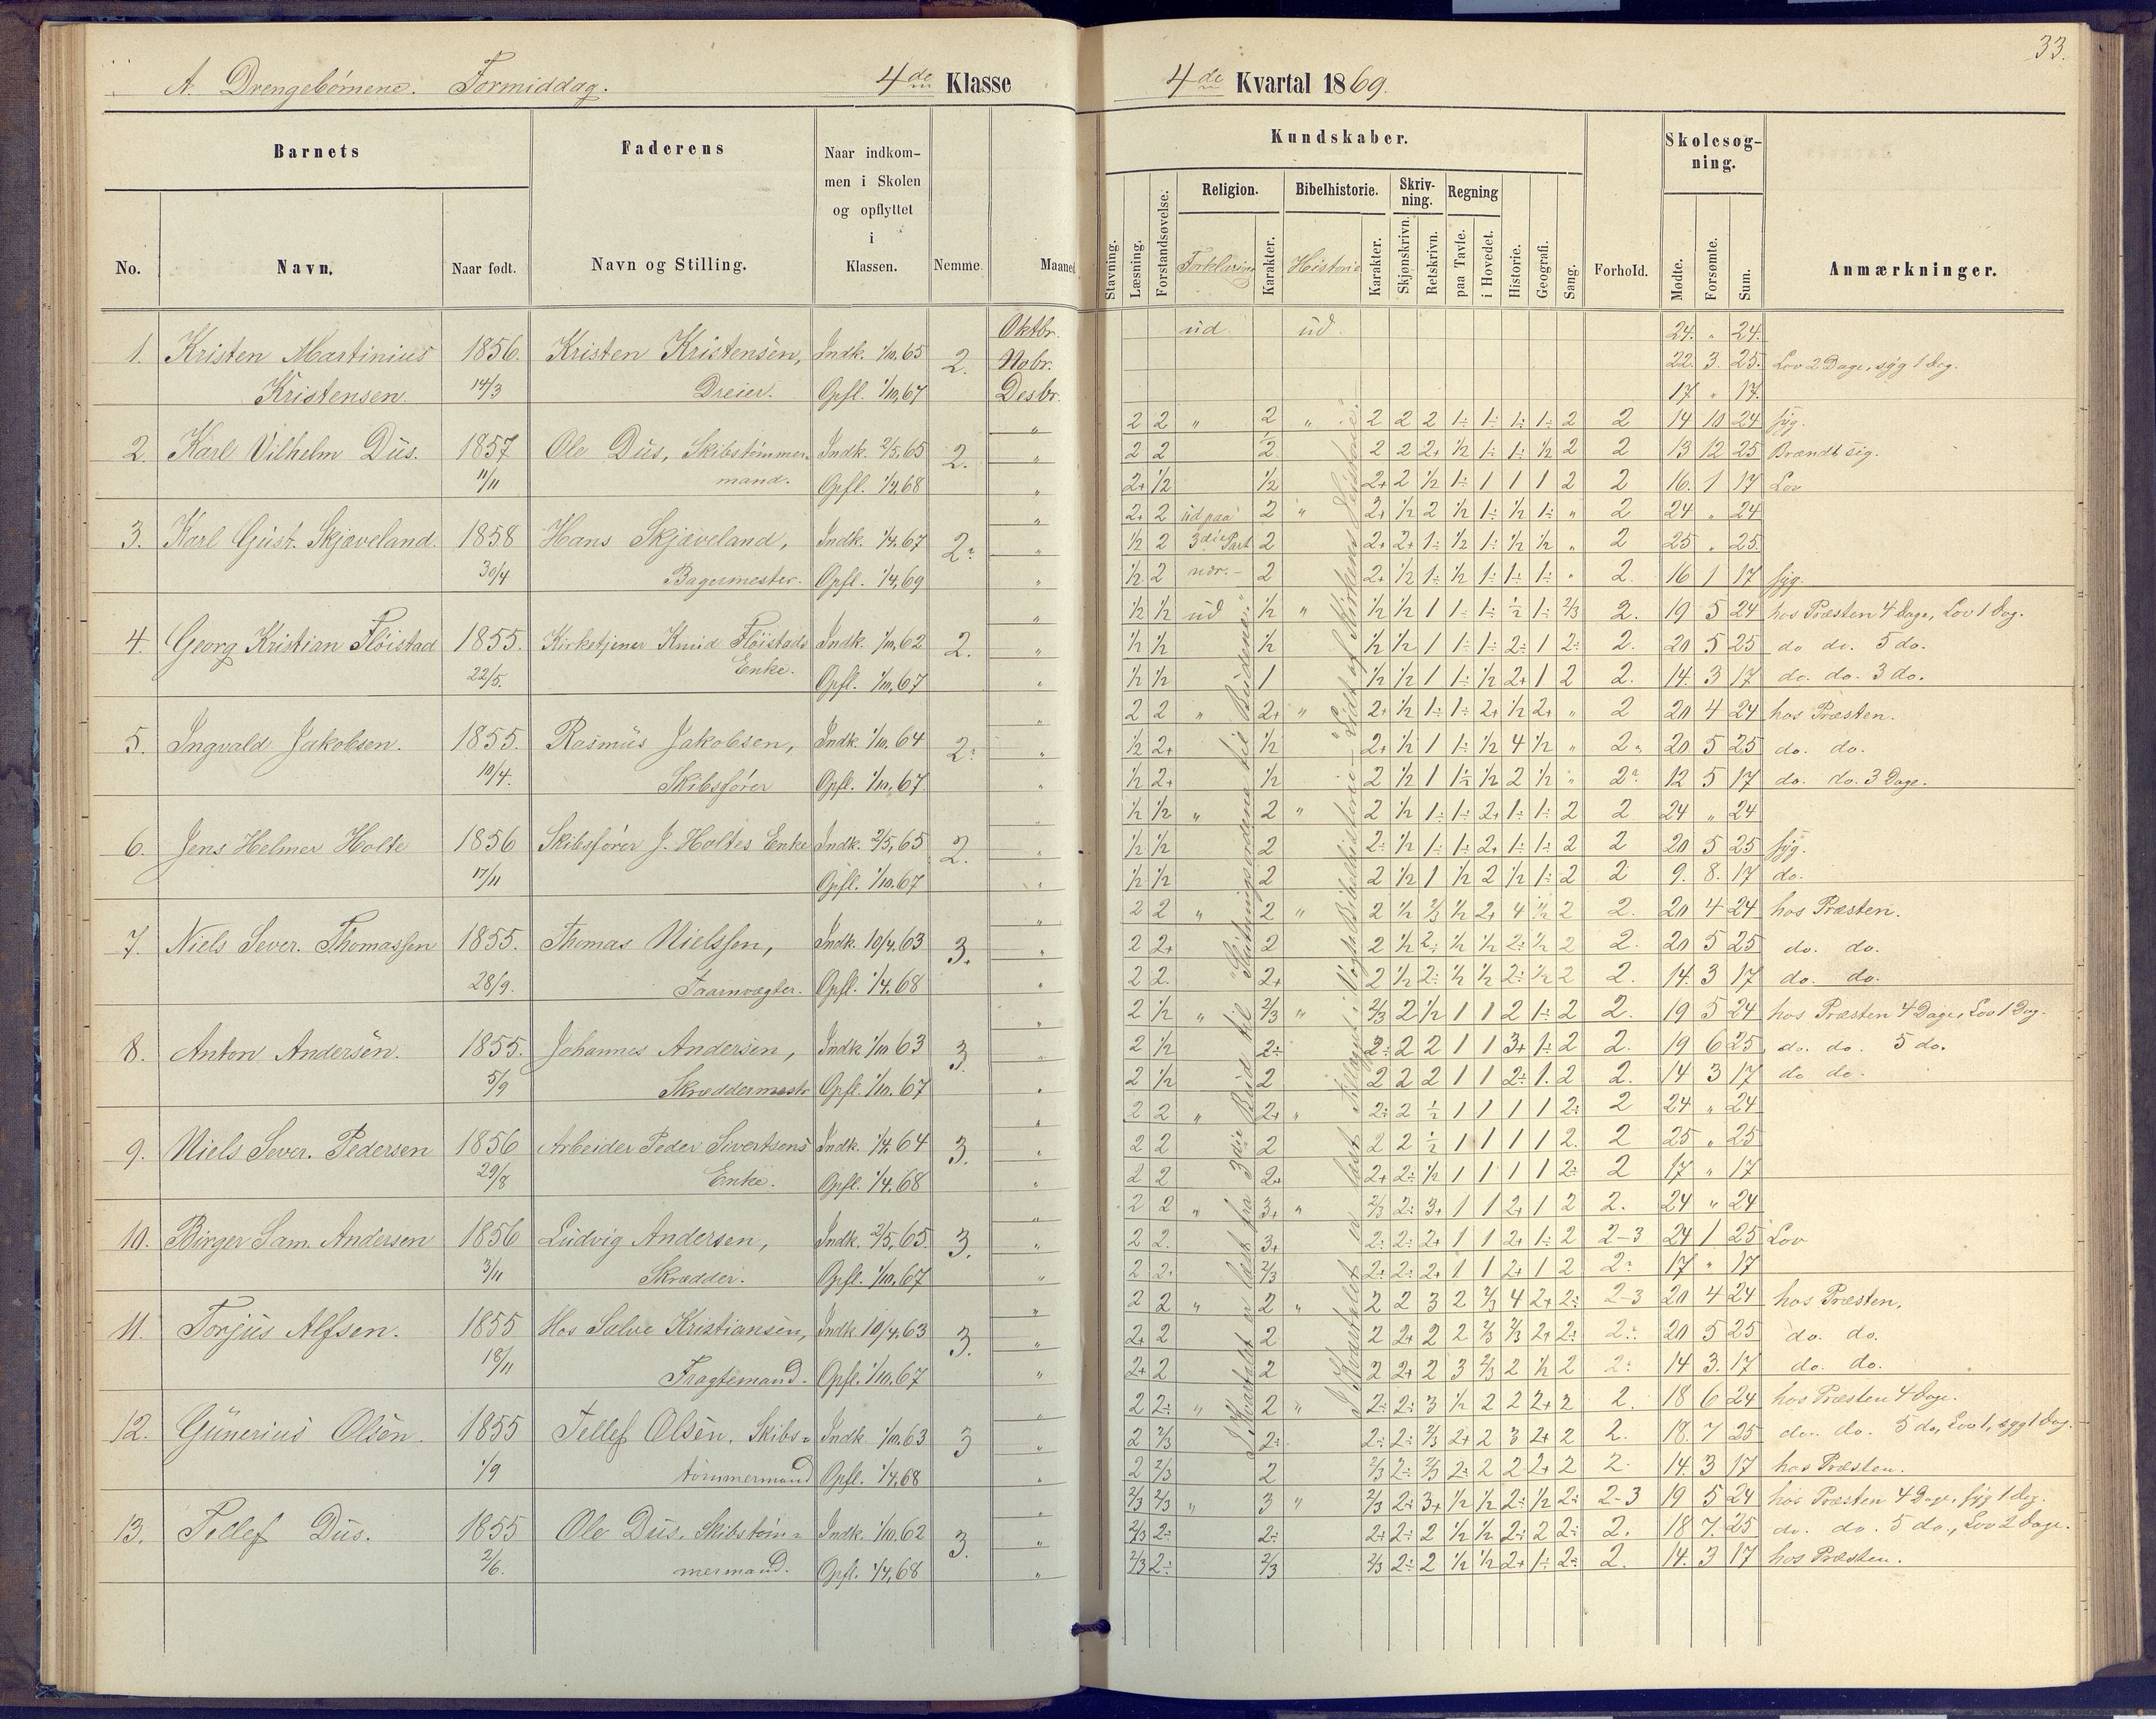 33.
A. Drengebørnene. Formiddag. 4de Klasse
4de Kvartal 1869.
Barnets
Faderens
Naar indkom-
men i Skolen
og opflyttet
i
Klassen.
No.
Navn.
Naar født.
Navn og Stilling.
Nemme.
Maaned
Kundskaber.
Skolesøg-
ning.
Religion.
Bibelhistorie.
Skriv-
ning.
Regning
Stavning.
Læsning.
Forstandsøvelse.
Forklaring
Karakter.
Historie
Karakter.
Skjønskrivn.
Retskrivn.
paa Tavle.
i Hovedet.
Historie.
Geografi.
Sang.
Forhold.
Mødte.
Forsømte.
Sum.
Anmærkninger.
Oktbr. ud. ud. 24. " 24.
1. Kristen Martinius 1856. Kristen Kristensen, Indk. 1/10,65 2. Nobr. 22. 3. 25. Lov 2 Dage, syg 1 Dag.
Kristensen 14/3 Dreier. Opfl. 1/10,67 Desbr. 17 " 17.
" 2 2 " 2 " 2 2 2 1÷ 1÷ 1÷ 1÷ 2 2 14 10 24 syg.
2. Karl Vilhelm Dus. 1857 Ole Dus, Skibstømmer- Indk. 2/5,65 2. " 2 2 1/2 2 2 2+ 1/2 1÷ 1÷ 1/2 2 2 13 12 25 Brændt sig.
11/11 mand. Opfl. 1/4,68 " 2+ 1/2 1/2 2+ 2 1/2 1÷ 1 1 1 2 2 16. 1 17 Lov
" 2+ 2 ud paa 2 " 2+ 1/2 2 1/2 1÷ 1/2 1÷ " 2 24 " 24
3. Karl Gust. Skjæveland. 1858 Hans Skjæveland, Indk. 1/4,67 2÷ " 1/2 2 3die Part 2 2+ 2+ 1÷ 1/2 1÷ 1/2 1/2 " 2 25 " 25
30/4 Bagermester. Opfl. 1/4,69 " 1/2 2 2 2+ 1/2 1÷ 1/2 1÷ 1÷ 1÷ " 2. 16 1 17 syg.
" 1/2 1/2 ud 1/2 " 1/2 1/2 1 1÷ 1÷ 1/2 1÷ 2/3 2. 19 5 24 hos Præsten 4 Dage, Lov 1 Dag.
4. Georg Kristian Fløistad 1855. Kirketjener Knud Fløistads Indk. 1/10,62 2. " 1/2 1/2 1/2 1/2 1/2 1 1÷ 1÷ 2÷ 1 2÷ 2. 20 5 25 do do. 5 do.
22/5. Enke. Opfl. 1/10,67 " 1/2 1/2 1 1/2 1/2 1 1÷ 1/2 2+ 1 2 2. 14. 3 17 do. do. 3 do.
" 2 2 " 2+ " 2+ 1/2 1÷ 1÷ 2+ 1/2 2+ " 2 20 4 24 hos Præsten.
5. Ingvald Jakobsen. 1855. Rasmus Jakobsen, Indk. 1/10.64 2÷ " 1/2 2+ 1/2 2+ 1/2 1 1÷ 1/2 4 1/2 " 2 20 5 25 do. do.
10/4. Skibsfører Opfl. 1/10,67. " 1/2 2+ 1/2 2 1/2 1 1/2 1/2 2 1/2 " 2÷ 12 5 17 do. do. 3 Dage.
" 1/2 1/2 " 2 " 2 1/2 1÷ 1÷ 2+ 1÷ 1÷ 2 2 24 " 24
6. Jens Helmer Holte 1856 Skibsfører J. Holtes Enke Indk. 2/5,65 2. " 1/2 1/2 2 2÷ 1/2 1÷ 1÷ 2+ 1÷ 1÷ 2 2 20 5 25 syg.
17/11 Opfl. 1/10.67 " 1/2 1/2 2 2 1/2 1 1/2 2 1/2 1÷ 2 2 9. 8. 17 do.
" 2 2 " 2 " 2 1/2 2/3 1/2 2+ 4 1/2 2 2. 20 4 24 hos Præsten.
7. Niels Sever. Thomassen 1855. Thomas Nielssen, Indk. 10/4.63 3. " 2 2+ 2 2 1/2 2÷ 1/2 1/2 2÷ 1/2 2 2. 20 5 25 do. do.
28/9. Taarnvægter. Opfl. 1/4.68 " 2 2. 2+ 2 1/2 2÷ 1/2 1/2 2÷ 1/2 2 2. 14. 3 17 do. do.
" 2 1/2 " 2/3 " 2/3 2 1/2 1 1 2 1÷ 2 2. 19 5 24 hos Præsten 4 Dage, Lov 1 Dag.
8. Anton Andersen. 1855. Johannes Andersen, Indk. 1/10 63 3. " 2 1/2 2÷ 2÷ 2 2 1 1 3+ 1÷ 2 2. 19 6 25 do. do. 5 do.
5/9 Skræddermestr Opfl. 1/10.67 " 2 1/2 2 2 2 2 1 1 2÷ 1. 2 2. 14 3 17 do do.
" 2 2 " 2+ " 2÷ 2 1/2 1 1 1 1 2÷ 2 24 " 24
9. Niels Sever. Pedersen 1856 Arbeider Peder Sivertsens Indk. 1/4 64 3. " 2 2 2 2 2 1/2 1 1 1 1 2. 2 25 " 25
29/8 Enke. Opfl. 1/4.68 " 2 2 2+ 2+ 2÷ 1/2 1 1 1 1 2÷ 2 17 " 17
" 2 2 " 3+ " 2/3 2÷ 3+ 1 1 2+ 1 2 2. 24 " 24
10. Birger Sam. Andersen 1856 Ludvig Andersen, Indk. 2/5,65. 3. " 2 2. 3+ 2÷ 2÷ 2+ 1 1 2+ 1÷ 2 2-3 24 1 25 Lov
3/11 Skrædder. Opfl. 1/10,67 " 2 2÷ 2/3 2÷ 2÷ 2+ 1 1 2+ 1 2 2÷ 17 " 17
" 2 2 " 2 " 2 2 3 2 2/3 4 2+ 2÷ 2-3 20 4 24 hos Præsten.
11. Torjus Alfsen. 1855 Hos Salve Kristiansen, Indk 10/4.63 3. " 2+ 2 2 2 2+ 2 2 2/3 2/3 2+ 2÷ 2÷ 20 5 25 do. do.
18/11 Fragtemand. Opfl. 1/10.67 " 2+ 2 2 2 2+ 2 3 2/3 2 1/2 2 2÷ 14 3. 17 do. do.
" 2 2÷ " 2 " 2÷ 2÷ 3 1/2 2 2 2+ 2 2. 18 6 24 hos Præsten 4 Dage.
12. Gunerius Olsen. 1855 Tellef Olsen, Skibs- Indk. 1/10.63 3 " 2 2/3 2÷ 2÷ 2÷ 2/3 2+ 2 3 2+ 2 2. 18. 7 25 do. do. 5 do, Lov 1, syg 1 Dag.
1/9 tømmermand Opfl. 1/4,68 " 2 2/3 2 2/3 2÷ 2/3 2÷ 2 2 2+ 2 2. 14. 3 17 hos Præsten.
" 2/3 2/3 " 3 " 2/3 2÷ 3+ 1/2 1/2 2÷ 1/2 2÷ 2-3 19 5 24 hos Præsten 4 Dage, syg 1 Dag.
13. Tellef Dus. 1855 Ole Dus, Skibstøm- Indk. 1/10.62 3. " 2/3 2÷ 2÷ 2÷ 2÷ 2 1/2 1/2 2÷ 2 2÷ 2. 18 7. 25 do. do. 5 do., Lov 2 Dage.
2/6. mermand. Opfl. 1/4,68 " 2/3 2÷ 2/3 2/3 2÷ 2 1/2 1/2 2+ 1÷ 2÷ 2. 14. 3 17 hos Præsten.
I Kvartalet er læst fra 3die Bud til "Slutningsordene til Budene."
I Kvartalet er læst Tillæget i Vogts Bibelhistorie - "Lidt af Kirkens Historie".